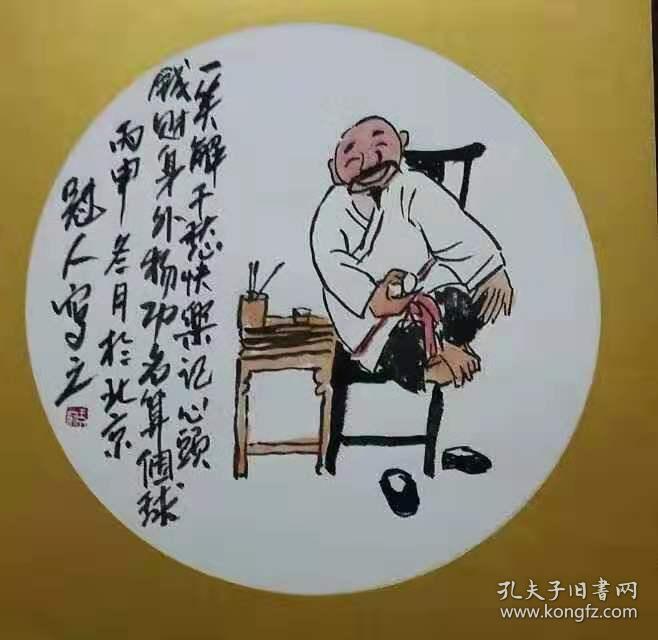 一笑解千愁快樂记心頭
钱财身外物功名算個球
丙申月於北京
人写之
孔夫子旧書网
www.kongfz.com